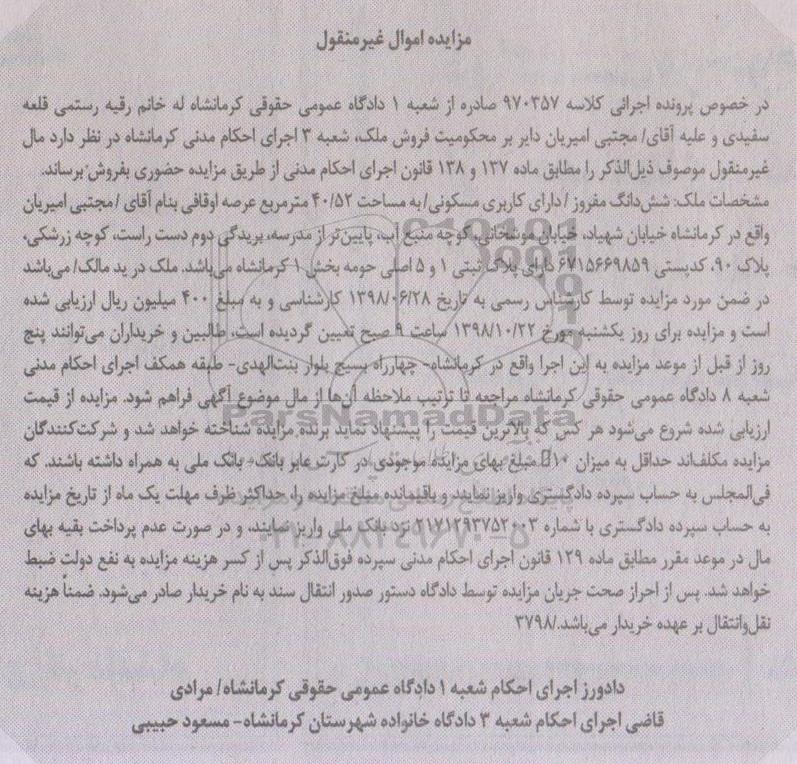 مزایده اموال غیرمنقول
در خصوص پرونده اجرائی کلاسه ۹۷۰۳۵۷ صادره از شعبه ۱ دادگاه عمومی حقوقی کرمانشاه له خانم رقیه رستمی قلعه
سفیدی و علیه آقای/ مجتبی امیریان دایر بر محکومیت فروش ملک، شعبه ۳ اجرای احکام مدنی کرمانشاه در نظر دارد مال
غیرمنقول موصوف ذیل‌الذکر را مطابق ماده ۱۳۷ و ۱۳۸ قانون اجرای احکام مدنی از طریق مزایده حضوری بفروش برساند.
مشخصات ملک: شش‌دانگ مفروز / دارای کاربری مسکونی/ به مساحت ۴۰/۵۲ مترمربع عرصه اوقافی بنام آقای / مجتبی امیریان
واقع در کرمانشاه خیابان شهیاد، خیابان موشخانی، کوچه منبع آب، پایین‌تر از مدرسه، بریدگی دوم دست راست، کوچه زرشکی،
پلاک ۹۰، کدپستی ۶۷۱۵۶۶۹۸۵۹ دارای پلاک ثبتی ۱ و ۵ اصلی حومه بخش ۱ کرمانشاه می‌باشد. ملک در ید مالک/ می‌باشد
در ضمن مورد مزایده توسط کارشناس رسمی به تاریخ ۱۳۹۸/۰۶/۲۸ کارشناسی و به مبلغ ۴۰۰ میلیون ریال ارزیابی شده
است و مزایده برای روز یکشنبه مورخ ۱۳۹۸/۱۰/۲۲ ساعت ۹ صبح تعیین گردیده است، طالبین و خریداران می‌توانند پنج
روز از قبل از موعد مزایده به این اجرا واقع در کرمانشاه- چهارراه بسیج بلوار بنت‌الهدی- طبقه همکف اجرای احکام مدنی
شعبه ۸ دادگاه عمومی حقوقی کرمانشاه مراجعه تا ترتیب ملاحظه آن‌ها از مال موضوع آگهی فراهم شود. مزایده از قیمت
ارزیابی شده شروع می‌شود هر کس که بالاترین قیمت را پیشنهاد نماید برنده مزایده شناخته خواهد شد و شرکت‌کنندگان
مزایده مکلف‌اند حداقل به میزان ۱۰ مبلغ بهای مزایده موجودی در کارت عابر بانک بانک ملی به همراه داشته باشند. که
فی‌المجلس به حساب سپرده دادگستری واریز نمایند و باقیمانده مبلغ مزایده را، حداکثر ظرف مهلت یک ماه از تاریخ مزایده
به حساب سپرده دادگستری با شماره ۲۱۷۱۲۹۳۷۵۲۰۰۳ نزد بانک ملی واریز نمایند، و در صورت عدم پرداخت بقیه بهای
مال در موعد مقرر مطابق ماده ۱۲۹ قانون اجرای احکام مدنی سپرده فوق‌الذکر پس از کسر هزینه مزایده به نفع دولت ضبط
خواهد شد. پس از احراز صحت جریان مزایده توسط دادگاه دستور صدور انتقال سند به نام خریدار صادر می‌شود. ضمناً هزینه
نقل‌وانتقال بر عهده خریدار می‌باشد./۳۷۹۸
دادورز اجرای احکام شعبه ۱ دادگاه عمومی حقوقی کرمانشاه/ مرادی
قاضی اجرای احکام شعبه ۳ دادگاه خانواده شهرستان کرمانشاه- مسعود حبیبی
ParsNamadData